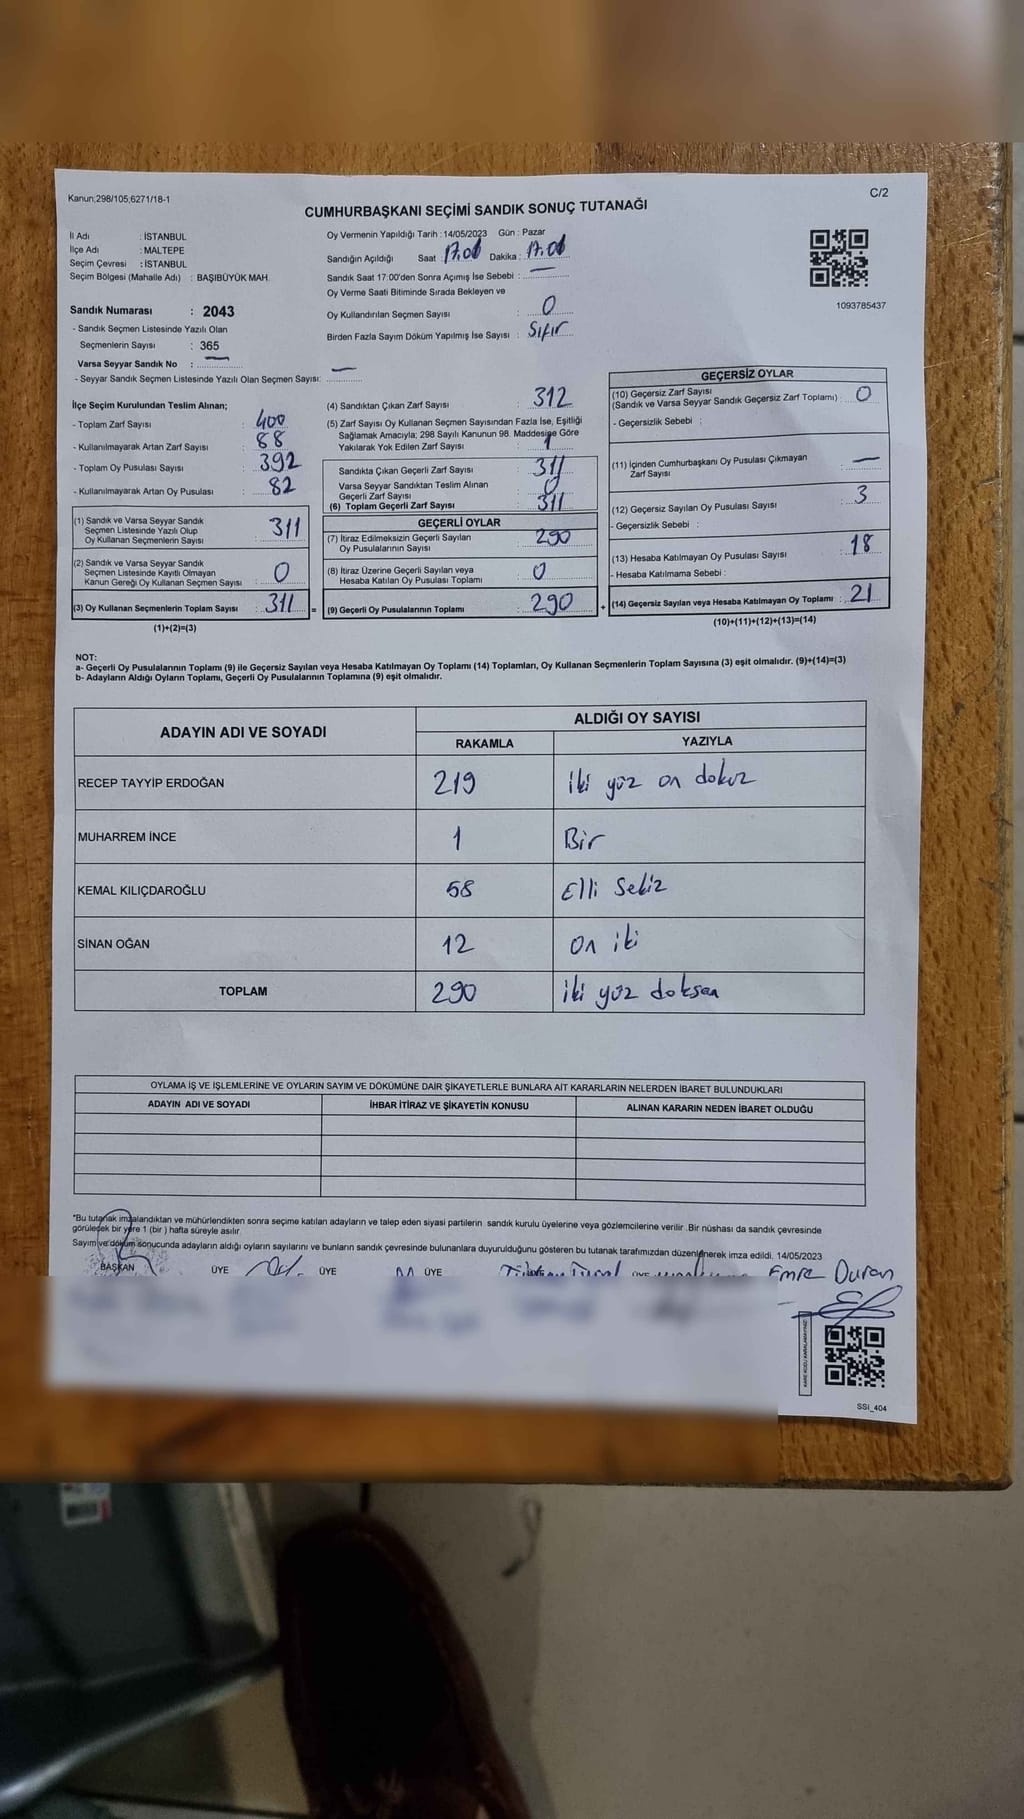 Kanun;298/105;6271/18-1
C/2
CUMHURBAŞKANI SEÇİMİ SANDIK SONUÇ TUTANAĞI
İl Adı : İSTANBUL
İlçe Adı : MALTEPE
Seçim Çevresi : İSTANBUL
Seçim Bölgesi (Mahalle Adı) : BAŞIBÜYÜK MAH.
Sandık Numarası : 2043
- Sandık Seçmen Listesinde Yazılı Olan
Seçmenlerin Sayısı : 365
Varsa Seyyar Sandık No : —
- Seyyar Sandık Seçmen Listesinde Yazılı Olan Seçmen Sayısı: —
Oy Vermenin Yapıldığı Tarih : 14/05/2023 Gün : Pazar
Sandığın Açıldığı Saat : 17.01 Dakika : 17.01
Sandık Saat 17:00'den Sonra Açımış İse Sebebi : —
Oy Verme Saati Bitiminde Sırada Bekleyen ve
Oy Kullandırılan Seçmen Sayısı : 0
Birden Fazla Sayım Döküm Yapılmış İse Sayısı : Sıfır
1093785437
İlçe Seçim Kurulundan Teslim Alınan;
- Toplam Zarf Sayısı : 400
- Kullanılmayarak Artan Zarf Sayısı : 88
- Toplam Oy Pusulası Sayısı : 392
- Kullanılmayarak Artan Oy Pusulası : 82
(1) Sandık ve Varsa Seyyar Sandık
Seçmen Listesinde Yazılı Olup
Oy Kullanan Seçmenlerin Sayısı : 311
(2) Sandık ve Varsa Seyyar Sandık
Seçmen Listesinde Kayıtlı Olmayan
Kanun Gereği Oy Kullanan Seçmen Sayısı : 0
(3) Oy Kullanan Seçmenlerin Toplam Sayısı : 311 =
(1)+(2)=(3)
(4) Sandıktan Çıkan Zarf Sayısı : 312
(5) Zarf Sayısı Oy Kullanan Seçmen Sayısından Fazla İse, Eşitliği
Sağlamak Amacıyla; 298 Sayılı Kanunun 98. Maddesine Göre
Yakılarak Yok Edilen Zarf Sayısı : 1
Sandıkta Çıkan Geçerli Zarf Sayısı : 311
Varsa Seyyar Sandıktan Teslim Alınan
Geçerli Zarf Sayısı : 0
(6) Toplam Geçerli Zarf Sayısı : 311
GEÇERLİ OYLAR
(7) İtiraz Edilmeksizin Geçerli Sayılan
Oy Pusulalarının Sayısı : 290
(8) İtiraz Üzerine Geçerli Sayılan veya
Hesaba Katılan Oy Pusulası Toplamı : 0
(9) Geçerli Oy Pusulalarının Toplamı : 290 +
GEÇERSİZ OYLAR
(10) Geçersiz Zarf Sayısı
(Sandık ve Varsa Seyyar Sandık Geçersiz Zarf Toplamı) : 0
- Geçersizlik Sebebi :
(11) İçinden Cumhurbaşkanı Oy Pusulası Çıkmayan
Zarf Sayısı : —
(12) Geçersiz Sayılan Oy Pusulası Sayısı : 3
- Geçersizlik Sebebi :
(13) Hesaba Katılmayan Oy Pusulası Sayısı : 18
- Hesaba Katılmama Sebebi :
(14) Geçersiz Sayılan veya Hesaba Katılmayan Oy Toplamı : 21
(10)+(11)+(12)+(13)=(14)
NOT:
a- Geçerli Oy Pusulalarının Toplamı (9) ile Geçersiz Sayılan veya Hesaba Katılmayan Oy Toplamı (14) Toplamları, Oy Kullanan Seçmenlerin Toplam Sayısına (3) eşit olmalıdır. (9)+(14)=(3)
b- Adayların Aldığı Oyların Toplamı, Geçerli Oy Pusulalarının Toplamına (9) eşit olmalıdır.
ADAYIN ADI VE SOYADI
ALDIĞI OY SAYISI
RAKAMLA YAZIYLA
RECEP TAYYİP ERDOĞAN 219 iki yüz on dokuz
MUHARREM İNCE 1 Bir
KEMAL KILIÇDAROĞLU 58 Elli Sekiz
SİNAN OĞAN 12 on iki
TOPLAM 290 iki yüz doksan
OYLAMA İŞ VE İŞLEMLERİNE VE OYLARIN SAYIM VE DÖKÜMÜNE DAİR ŞİKAYETLERLE BUNLARA AİT KARARLARIN NELERDEN İBARET BULUNDUKLARI
ADAYIN ADI VE SOYADI İHBAR İTİRAZ VE ŞİKAYETİN KONUSU ALINAN KARARIN NEDEN İBARET OLDUĞU
"Bu tutanak imzalandıktan ve mühürlendikten sonra seçime katılan adayların ve talep eden siyasi partilerin sandık kurulu üyelerine veya gözlemcilerine verilir .Bir nüshası da sandık çevresinde
görülecek bir yere 1 (bir ) hafta süreyle asılır.
Sayım ve döküm sonucunda adayların aldığı oyların sayılarını ve bunların sandık çevresinde bulunanlara duyurulduğunu gösteren bu tutanak tarafımızdan düzenlenerek imza edildi. 14/05/2023
BAŞKAN ÜYE ÜYE ÜYE ÜYE Emre Duran
SSI_404